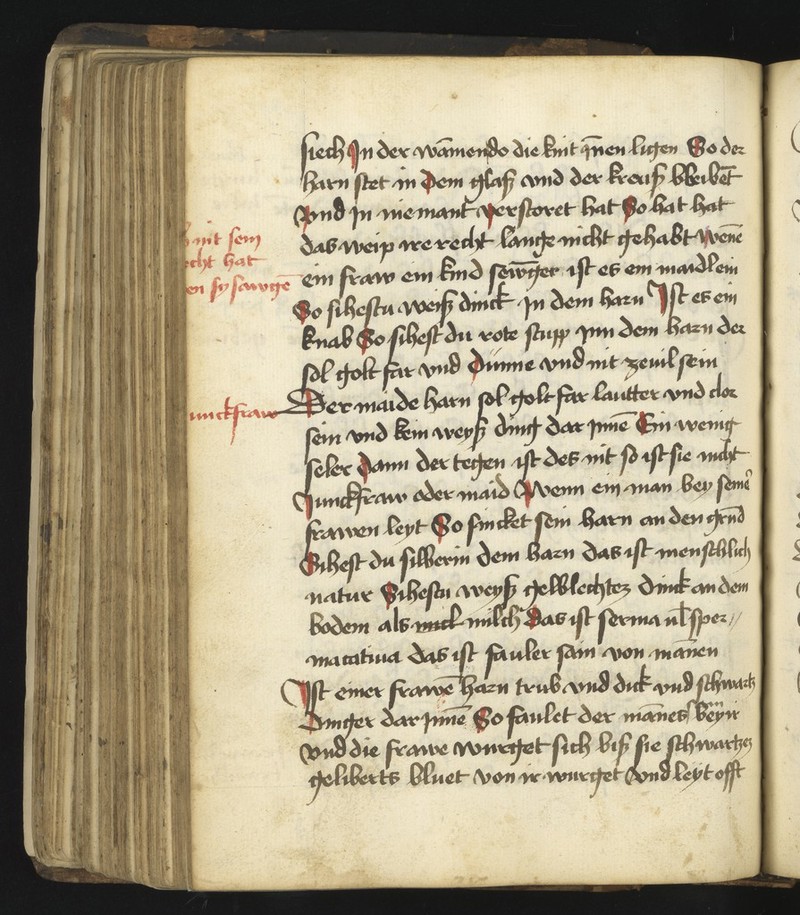 siech In der wāmendo die kint ynen ligen So der
harn stet in Dem glaß vnd der kreuß bleibet
Vnd In niemant verstoret hat So hat hat
das weip ire recht lange nicht gehabt Wene
nit sein
echt hat
en sy sawgē
ein fraw ein kind sewget ist es ein maidlein
So sihestu weiß dinck In dem harn Ist es ein
knab So sihest du rote stupp Inn dem harn der
sol golt far vnd Dünne vnd nit zevil sein
unckfraw
Der maide harn sol golt far lautter vnd clor
sein vnd kein weyß ding dar Innē Ein wenig
seler Dann der tegen ist des nit so ist sie nicht
Junckfraw oder maid Wenn ein man bey seinē
frawen leyt So sincket sein harn an den grūd
Sihest du silberin dem harn das ist menschlich
natur Sihestu weyß gelblechtez dinck an dem
bodem als milch Das ist sperma
macativa das ist fauler sam von mānen
Ist einer frawē harn trub vnd dick vnd schwartz
Dinger dar Innē So faulet der mānes
Vnd die frawe wurget sich biß sie schwartzes
geliberts bluet von ir wurget Vnd leyt offt